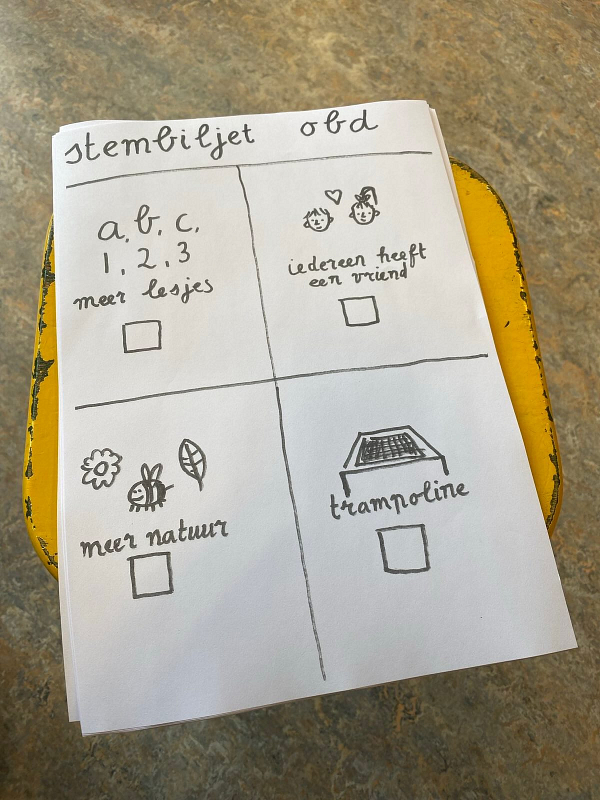 stembiljet obd
a, b, c,
1, 2, 3
meer lesjes
iedereen heeft
een vriend
meer natuur
trampoline